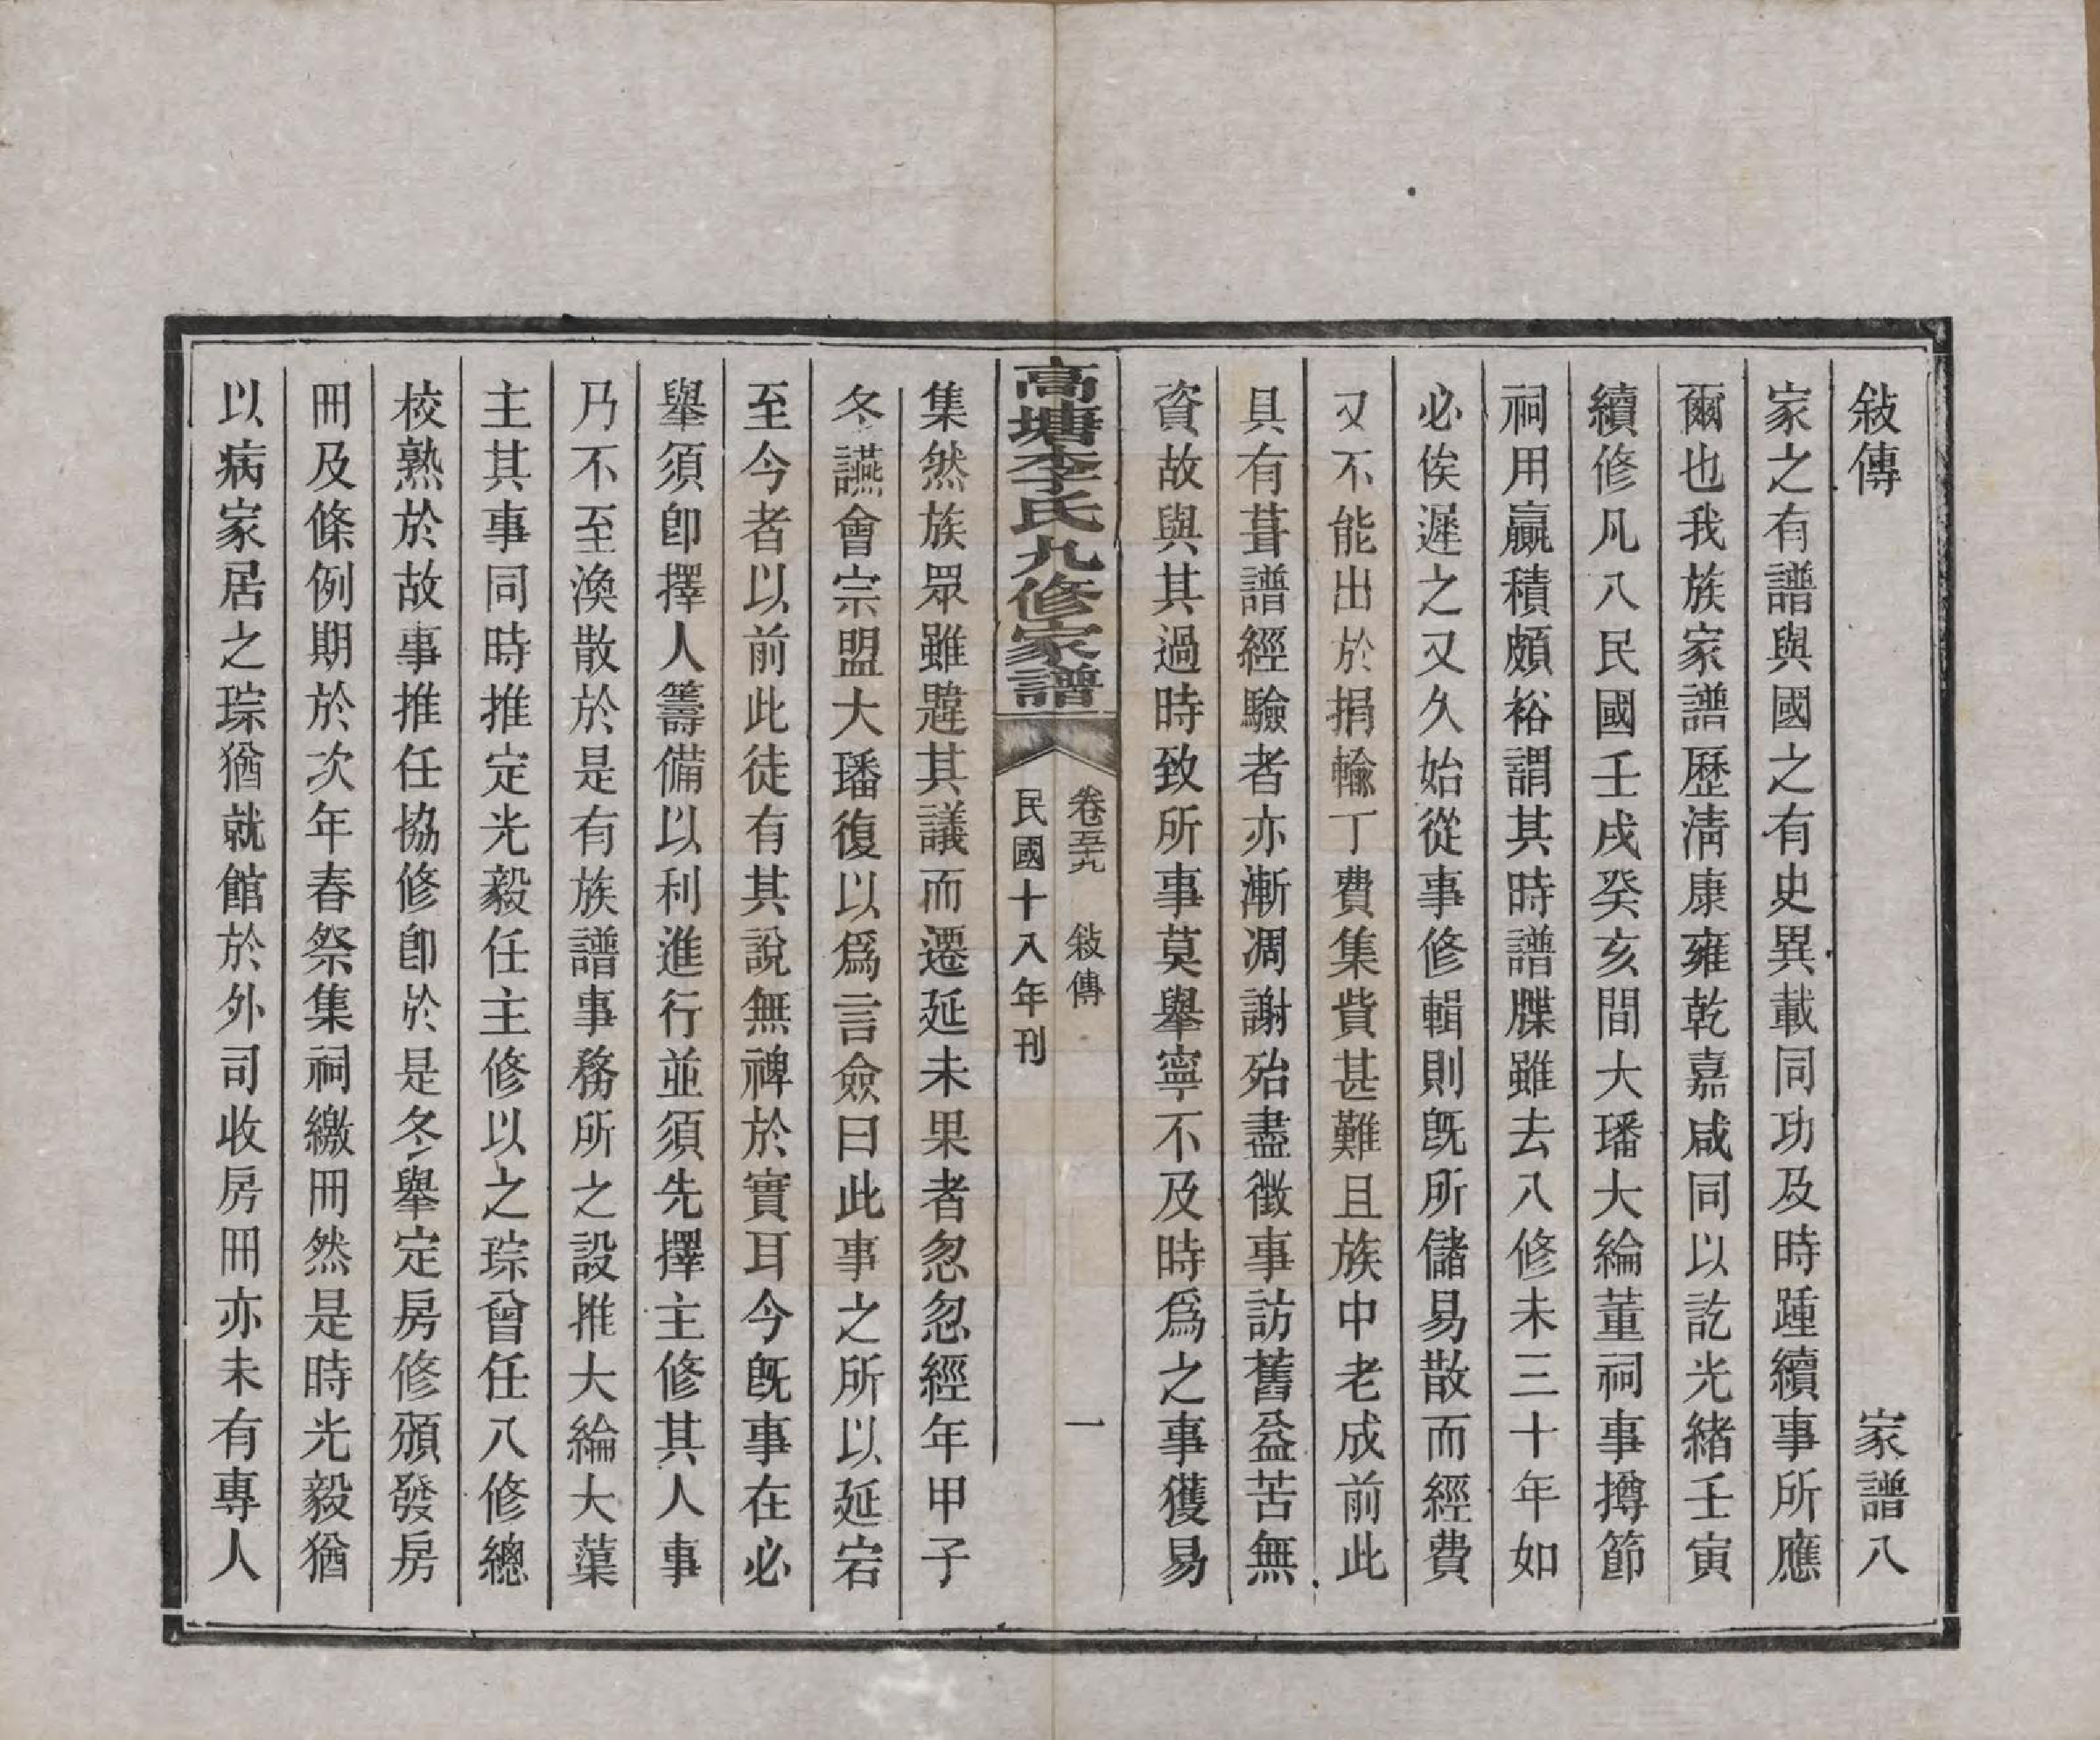 敍傳 家譜八
家之有譜與國之有史異載同功及時踵續事所應
爾也我族家譜歷淸康雍乾嘉咸同以訖光緖壬寅
續修凡八民國壬戌癸亥間大璠大綸董祠事撙節
祠用贏積頗裕謂其時譜牒雖去八修未三十年如
必俟遲之又久始從事修輯則旣所儲易散而經費
又不能出於捐輸丁費集貲甚難且族中老成前此
具有葺譜經驗者亦漸凋謝殆盡徵事訪舊益苦無
資故與其過時致所事莫舉寧不及時爲之事獲易
高塘李氏九修家譜
卷五十九 敍傳 一
民國十八年刊
集然族眾雖韙其議而遷延未果者忽忽經年甲子
冬讌會宗盟大璠復以爲言僉曰此事之所以延宕
至今者以前此徒有其說無裨於實耳今旣事在必
舉須卽擇人籌備以利進行並須先擇主修其人事
乃不至渙散於是有族譜事務所之設推大綸大葉
主其事同時推定光毅任主修以之琮曾任八修總
校熟於故事推任協修卽於是冬舉定房修頒發房
冊及條例期於次年春祭集祠繳冊然是時光毅猶
以病家居之琮猶就館於外司收房冊亦未有專人